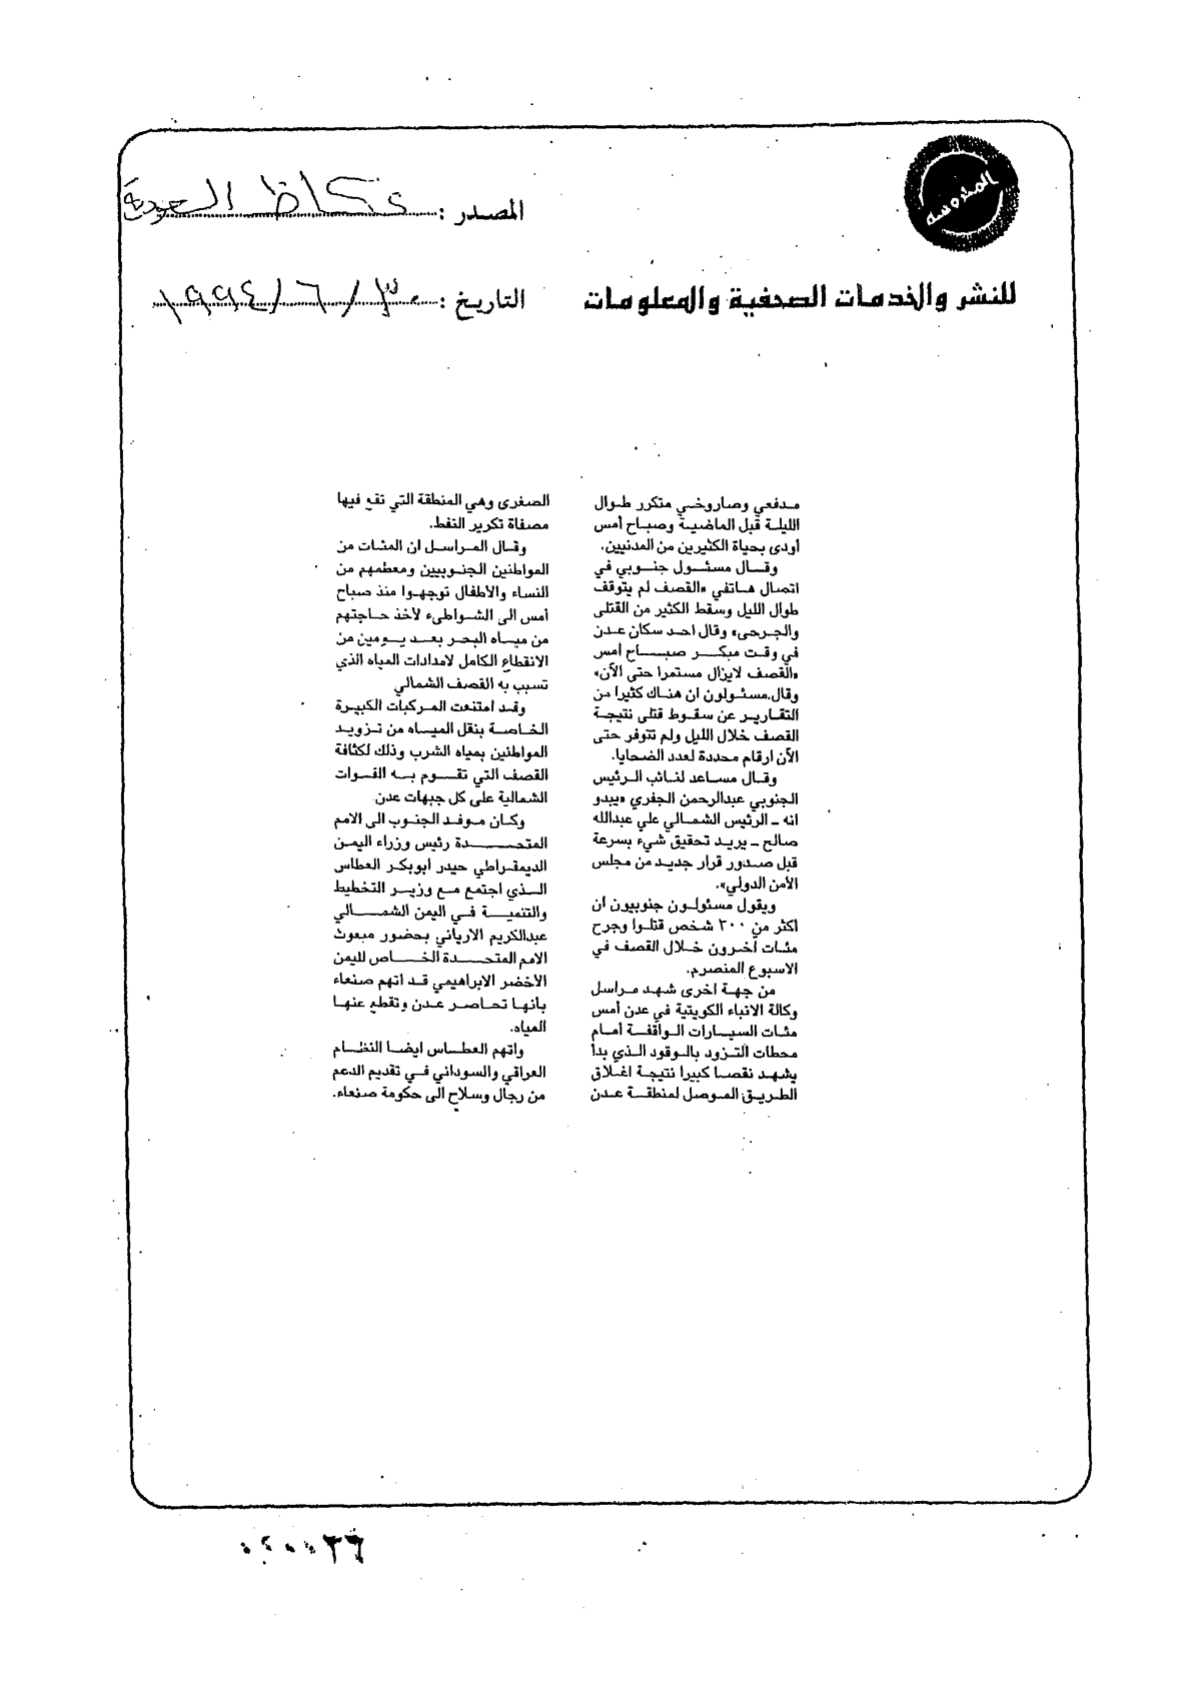 المحروسة
المصدر : عكاظ السعودية
للنشر والخدمات الصحفية والمعلومات
التاريخ : ٣٠ / ٦ / ١٩٩٤
مدفعي وصاروخي متكرر طوال
الليلة قبل الماضية وصباح أمس
أودى بحياة الكثيرين من المدنيين.
وقال مسئول جنوبي في
اتصال هاتفي «القصف لم يتوقف
طوال الليل وسقط الكثير من القتلى
والجرحى» وقال احد سكان عدن
في وقت مبكر صباح أمس
«القصف لايزال مستمرا حتى الآن»
وقال مسئولون ان هناك كثيرا من
التقارير عن سقوط قتلى نتيجة
القصف خلال الليل ولم تتوفر حتى
الآن ارقام محددة لعدد الضحايا.
وقال مساعد لنائب الرئيس
الجنوبي عبدالرحمن الجفري «يبدو
انه ـ الرئيس الشمالي علي عبدالله
صالح ـ يريد تحقيق شيء بسرعة
قبل صدور قرار جديد من مجلس
الأمن الدولي».
ويقول مسئولون جنوبيون أن
اكثر من ٣٠٠ شخص قتلوا وجرح
مئات أخرون خلال القصف في
الاسبوع المنصرم.
من جهة اخرى شهد مراسل
وكالة الانباء الكويتية في عدن أمس
مئات السيارات الواقفة أمام
محطات التزود بالوقود الذي بدأ
يشهد نقصا كبيرا نتيجة اغلاق
الطريق الموصل لمنطقة عدن
الصغرى وهي المنطقة التي تقع فيها
مصفاة تكرير النفط.
وقال المراسل ان المئات من
المواطنين الجنوبيين ومعظمهم من
النساء والأطفال توجهوا منذ صباح
أمس الى الشواطىء لأخذ حاجتهم
من مياه البحر بعد يومين من
الانقطاع الكامل لامدادات المياه الذي
تسبب به القصف الشمالي
وقد امتنعت المركبات الكبيرة
الخاصة بنقل المياه من تزويد
المواطنين بمياه الشرب وذلك لكثافة
القصف التي تقوم به القوات
الشمالية على كل جبهات عدن
وكان موفد الجنوب الى الامم
المتحدة رئيس وزراء اليمن
الديمقراطي حيدر ابوبكر العطاس
الذي اجتمع مع وزير التخطيط
والتنمية في اليمن الشمالي
عبدالكريم الارياني بحضور مبعوث
الامم المتحدة الخاص لليمن
الأخضر الابراهيمي قد اتهم صنعاء
بأنها تحاصر عدن وتقطع عنها
المياه.
واتهم العطاس ايضا النظام
العراقي والسوداني في تقديم الدعم
من رجال وسلاح الى حكومة صنعاء.